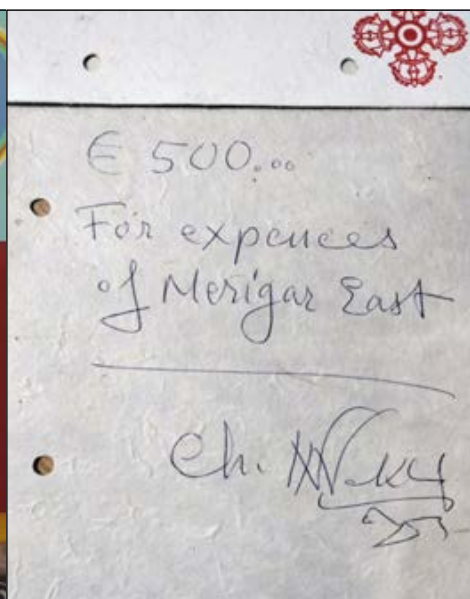 € 500.00
For expences
of Merigar East
Ch. N